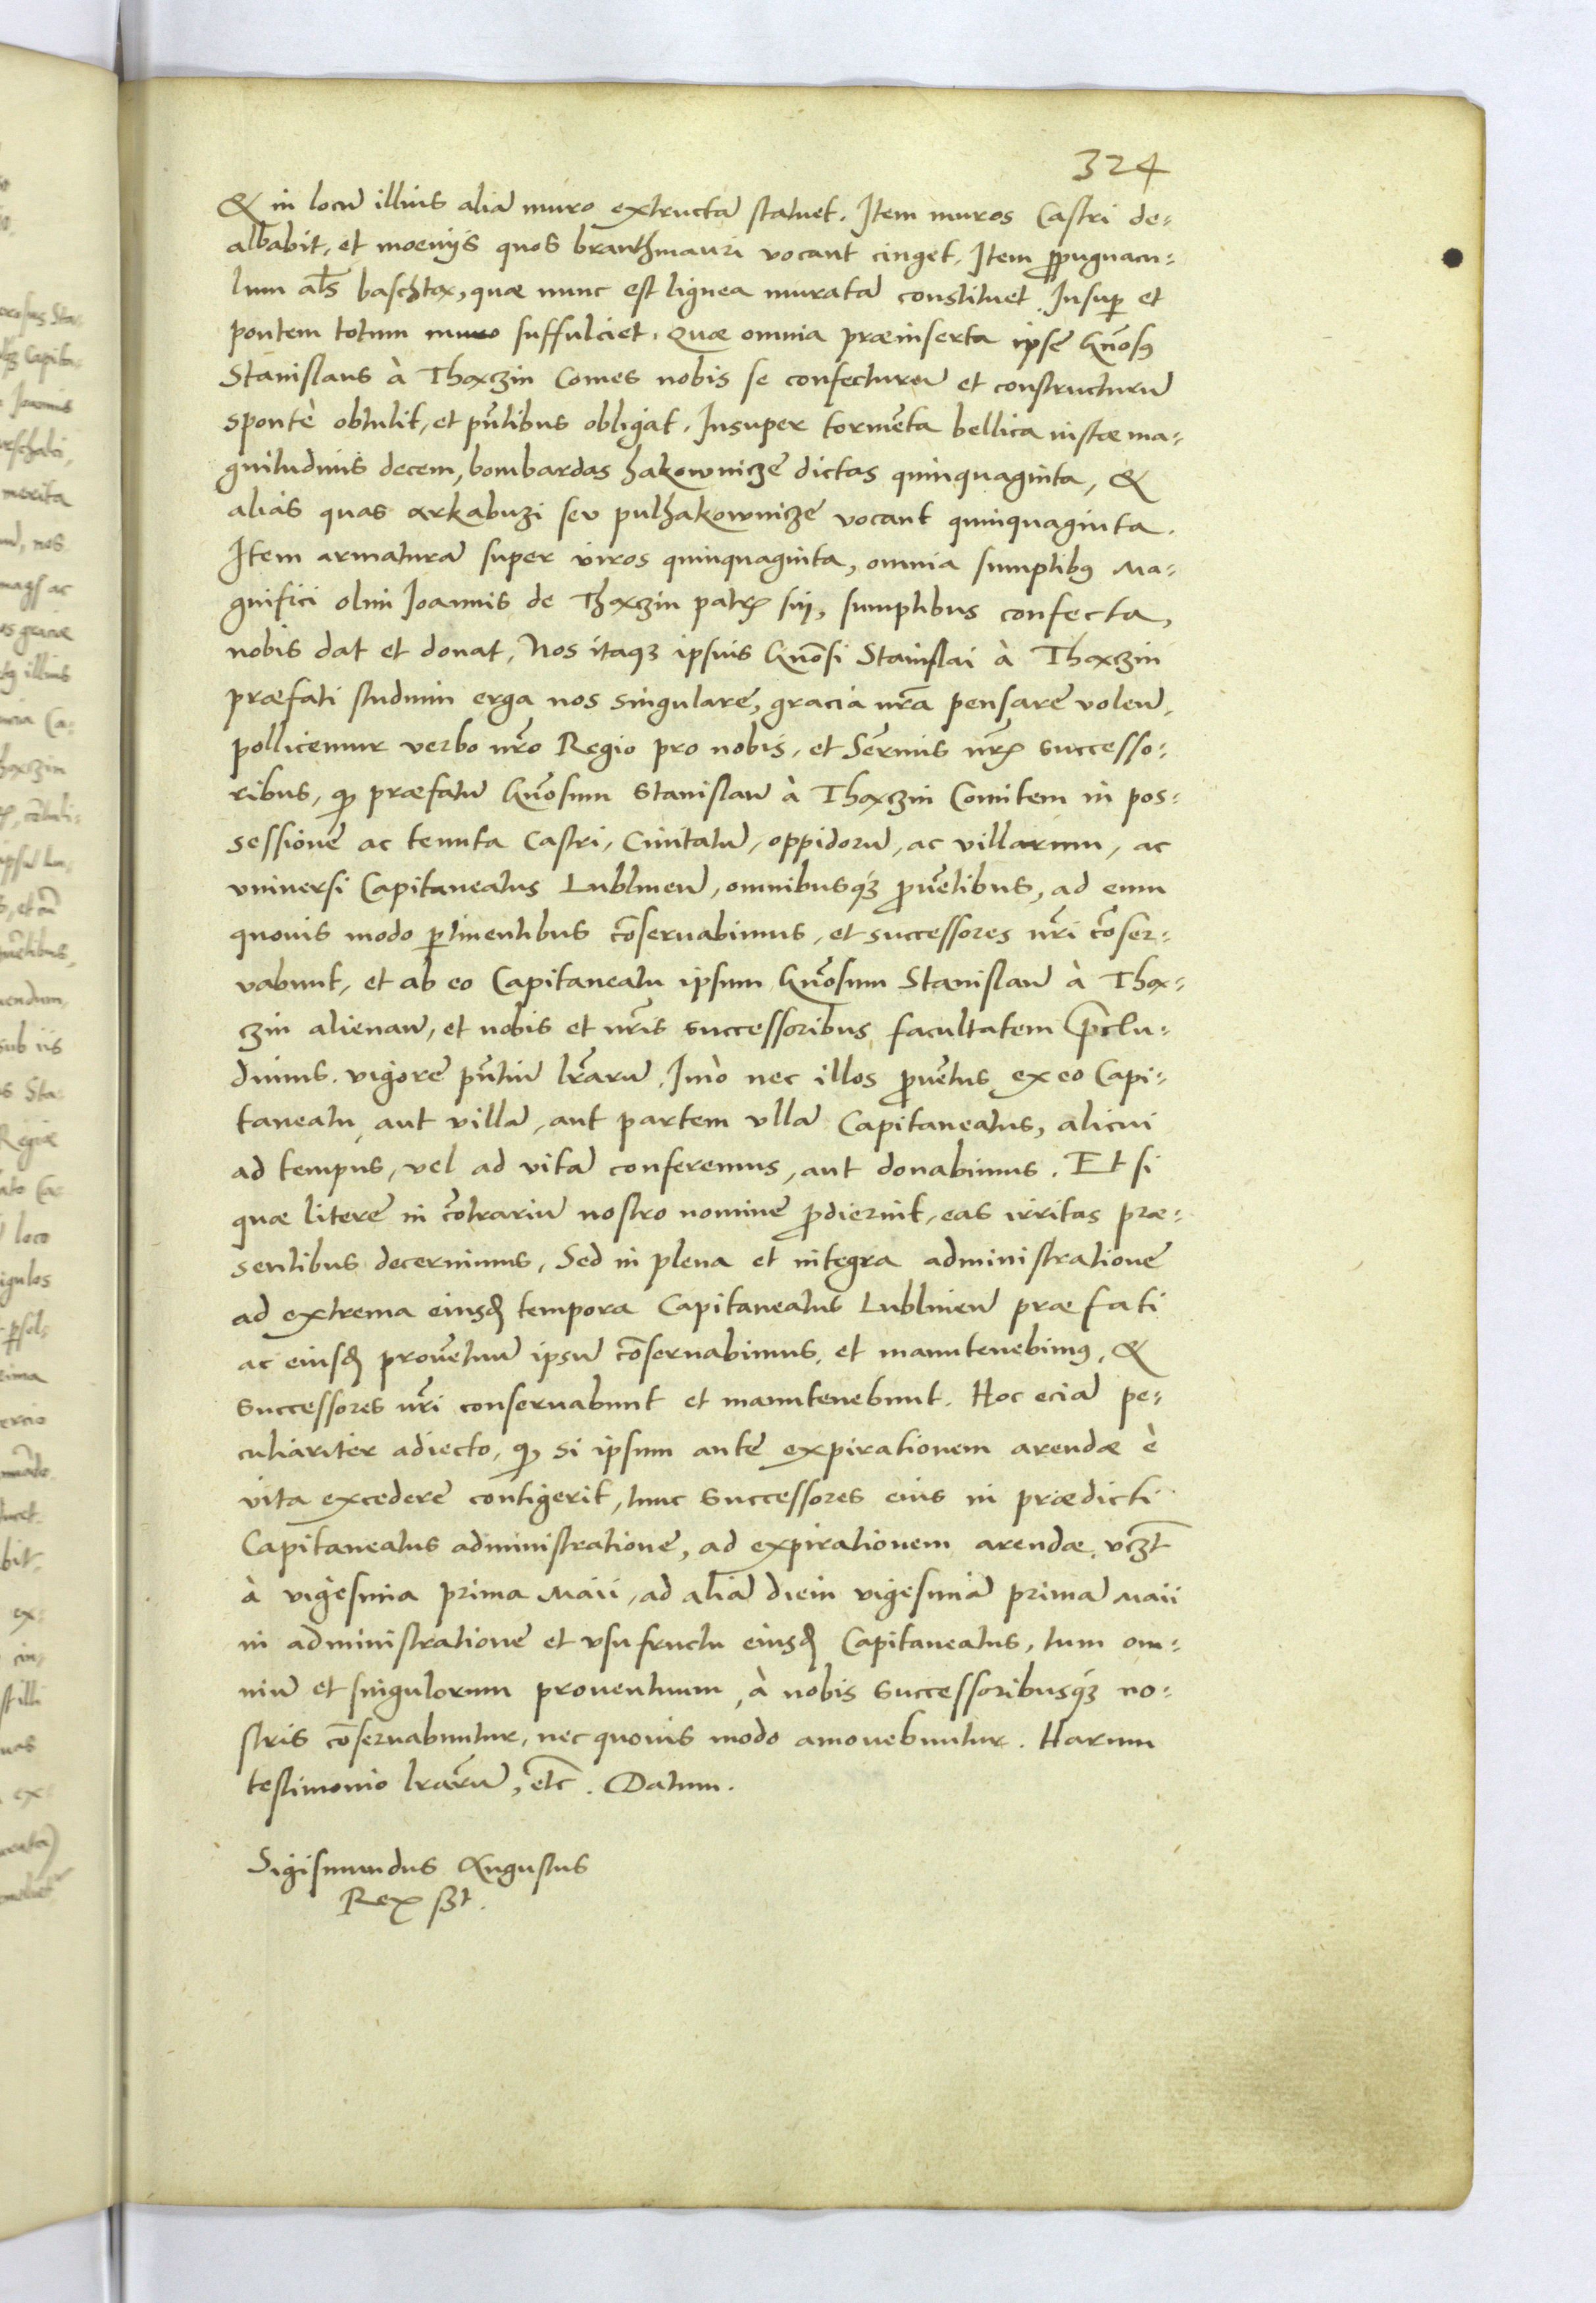 324
& in locū illius aliā muro extructā statuet. Item muros Castri de-
albabit, et moenijs quos branthmauri vocant cinget. Item ꝓpugnacu-
lum al̃s baschtax, quæ nunc est lignea muratā constituet. Insuꝑ et
pontem totum muro suffulciet. Quæ omnia præinserta ipse Gn̄osꝰ
Stanislaus à Thaxzin Comes nobis se confecturū et constructurū
spontè obtulit, et pn̄tibus obligat. Insuper tormēta bellica iustæ ma-
gnitudinis decem, bombardas hakownicze dictas quinquaginta, &
alias quas arkabuzi seu pulhakownicze vocant quinquaginta.
Item armaturā super viros quinquaginta, omnia sumptibꝰ Ma-
gnifici olim Ioannis de Thaxzin patrꝭ sui, sumptibus confecta,
nobis dat et donat, Nos itaqꝫ ipsius Gn̄osi Stanislai à Thaxzin
præfati studium erga nos singulare, gracia nr̄a pensare volen̄,
pollicemur verbo nr̄o Regio pro nobis, et Serm̄is nr̄ꝭ successo-
ribus, qꝫ præfatū Gn̄osum Stanislaū à Thaxzin Comitem in pos-
sessione ac tenuta Castri, Ciuitatū, oppidorū, ac villarum, ac
vniuersi Capitaneatus Lublinen̄, omnibusqꝫ ꝓuētibus, ad eum
quouis modo ꝑtinentibus cōseruabimus, et successores nr̄i cōser-
vabunt, et ab eo Capitaneatu ipsum Gn̄osum Stanislaū à Thax-
zin alienan̄, et nobis et nr̄is successoribus facultatem p̄clu-
dimus. vigore pn̄tiū lr̄arū. Imò nec illos ꝓuētus ex eo Capi-
taneatu, aut villā, aut partem vllā Capitaneatus, alicui
ad tempus, vel ad vitā conferemus, aut donabimus. Et si
quæ literæ in cōtrariū nostro nomine ꝓdierint, eas irritas præ-
sentibus decernimus, Sed in plena et integra administratione
ad extrema eiusdē tempora Capitaneatus Lublinen̄ præfati
ac eiusdē prouētuū ipsū cōseruabimus, et manutenebimꝰ, &
successores nr̄i conseruabunt et manutenebunt. Hoc eciā pe-
culiariter adiecto, qꝫ si ipsum ante expirationem arendæ è
vita excedere contigerit, tunc successores eius in prædicti
Capitaneatus administratione, ad expirationem arendæ, vcꝫt
à vigesima prima Maii, ad aliā diem vigesimā primā Maii
in administratione et vsufructu eiusdē Capitaneatus, tum om-
niū et singulorum prouentuum, à nobis successoribusqꝫ no-
stris cōseruabuntur, nec quouis modo amouebuntur. Harum
testimonio lrārū, etc̄. Datum.
Sigismundus Augustus
Rex sꝫt.